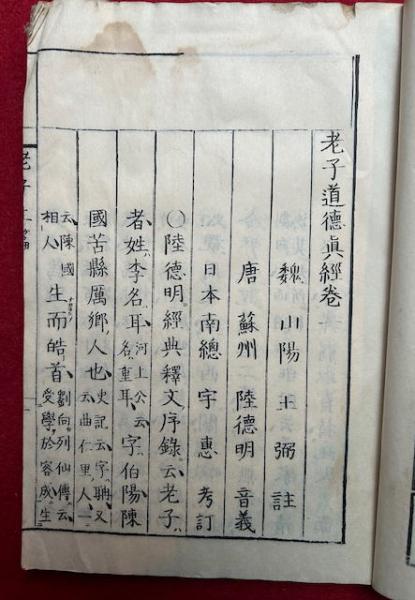 老子道德眞經卷
魏 山陽 王弼 註
唐 蘇州 陸德明 音義
日本南總 宇惠 考訂
〇陸德明經典釋文序錄云老子
者姓李名耳河上公云名重耳字伯陽陳
國苦縣厲鄕人也史記云字聃又云曲仁里人一
云陳國相人生而皓首劉向列仙傳云受學於容成生
老子